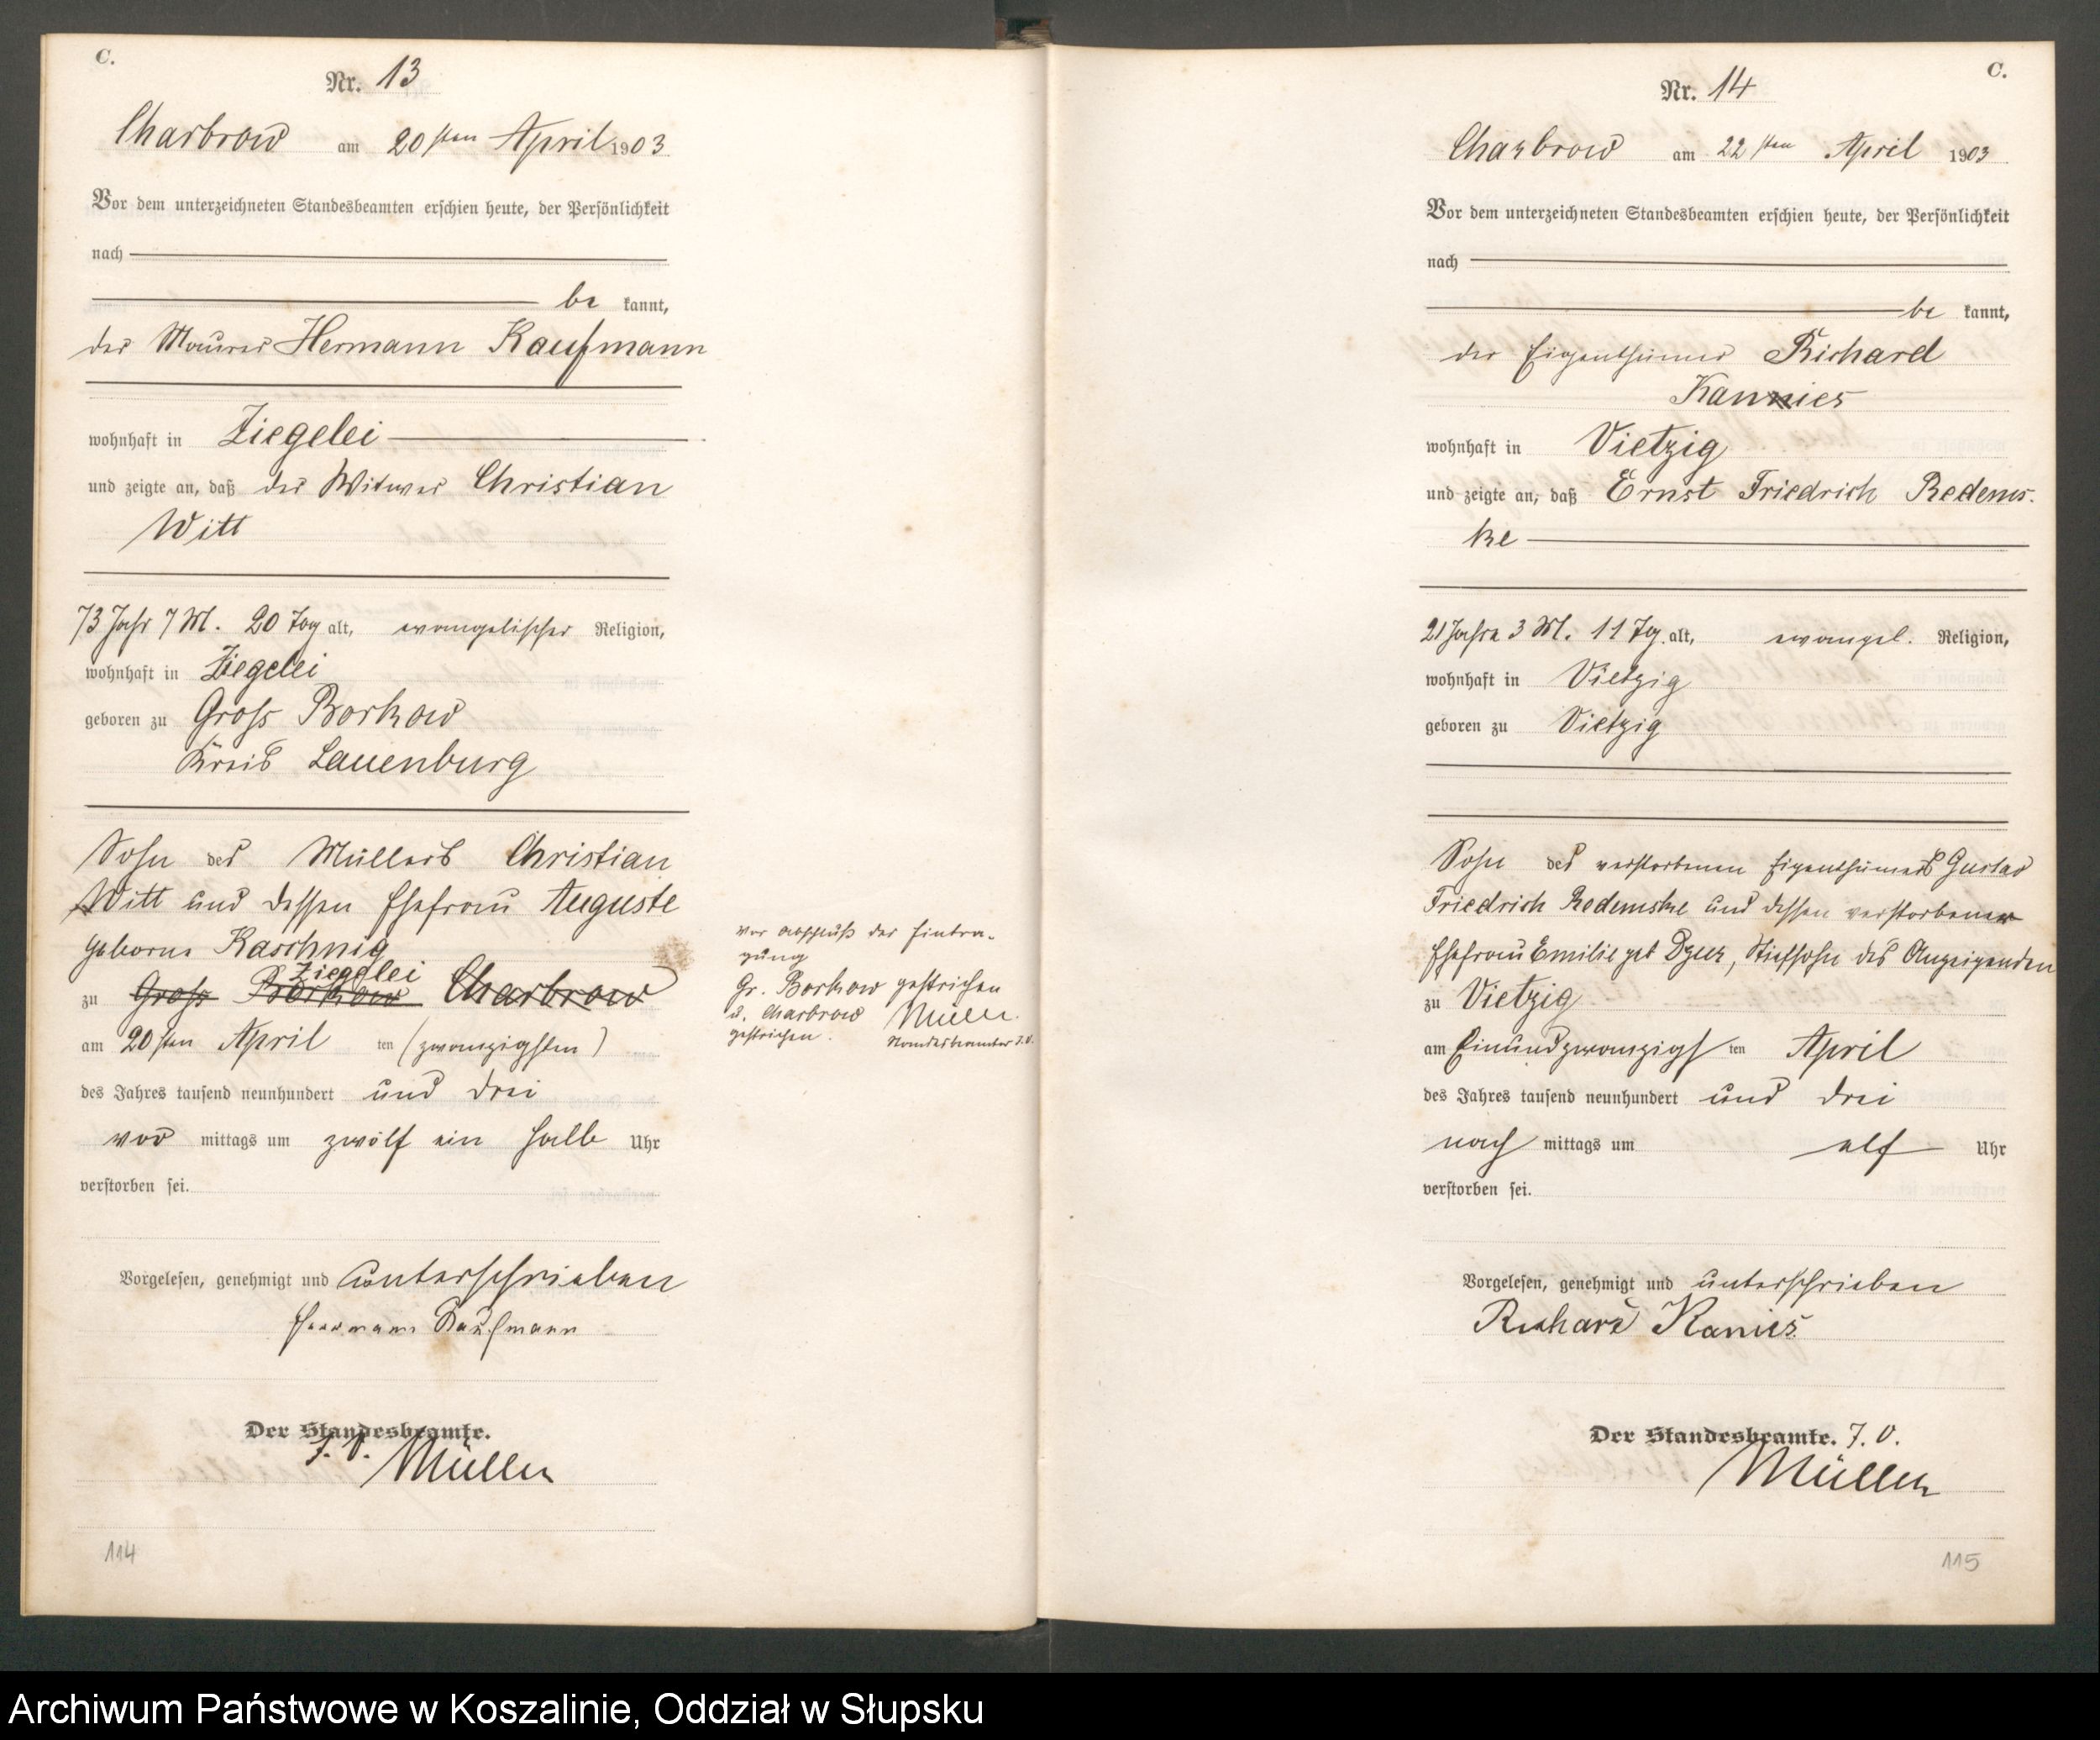 C.
Nr. 13
Charbrow am 20sten April 1903
Vor dem unterzeichneten Standesbeamten erschien heute, der Persönlichkeit
nach
be kannt,
der Maurer Hermann Kaufmann
wohnhaft in Ziegelei
und zeigte an, daß der Witwer Christian
Witt
73 Jahr 7 M. 20 Tag alt, evangelischer Religion,
wohnhaft in Ziegelei
geboren zu Gross Borkow
Kreis Lauenburg
Sohn des Müllers Christian
Witt und dessen Ehefrau Auguste
geborne Raschnig
Ziegelei
zu Gross Borkow Charbrow
am 20sten April ten (zwanzigsten)
des Jahres tausend neunhundert und drei
vor mittags um zwölf ein halb Uhr
verstorben sei.
Vorgelesen, genehmigt und unterschrieben
Herrmann Kaufmann
Der Standesbeamte.
J. V. Müller
114
vor Abschluß der Eintra-
gung
Gr. Borkow gestrichen
u. Charbrow Müller.
gestrichen. Standesbeamter J.V.
C.
Nr. 14
Charbrow am 22sten April 1903
Vor dem unterzeichneten Standesbeamten erschien heute, der Persönlichkeit
nach
be kannt,
der Eigenthümer Richard
Kannies
wohnhaft in Vietzig
und zeigte an, daß Ernst Friedrich Redems-
ke
21 Jahre 3 M. 11 Tg. alt, evangel. Religion,
wohnhaft in Vietzig
geboren zu Vietzig
Sohn des verstorbenen Eigenthümers Gustav
Friedrich Redemske und dessen verstorbener
Ehefrau Emilie geb , Stiefsohn des Anzeigenden
zu Vietzig
am Einundzwanzigs ten April
des Jahres tausend neunhundert und drei
nach mittags um elf Uhr
verstorben sei.
Vorgelesen, genehmigt und unterschrieben
Richard Kanies
Der Standesbeamte. J. V.
Müller
115
Archiwum Państwowe w Koszalinie, Oddział w Słupsku